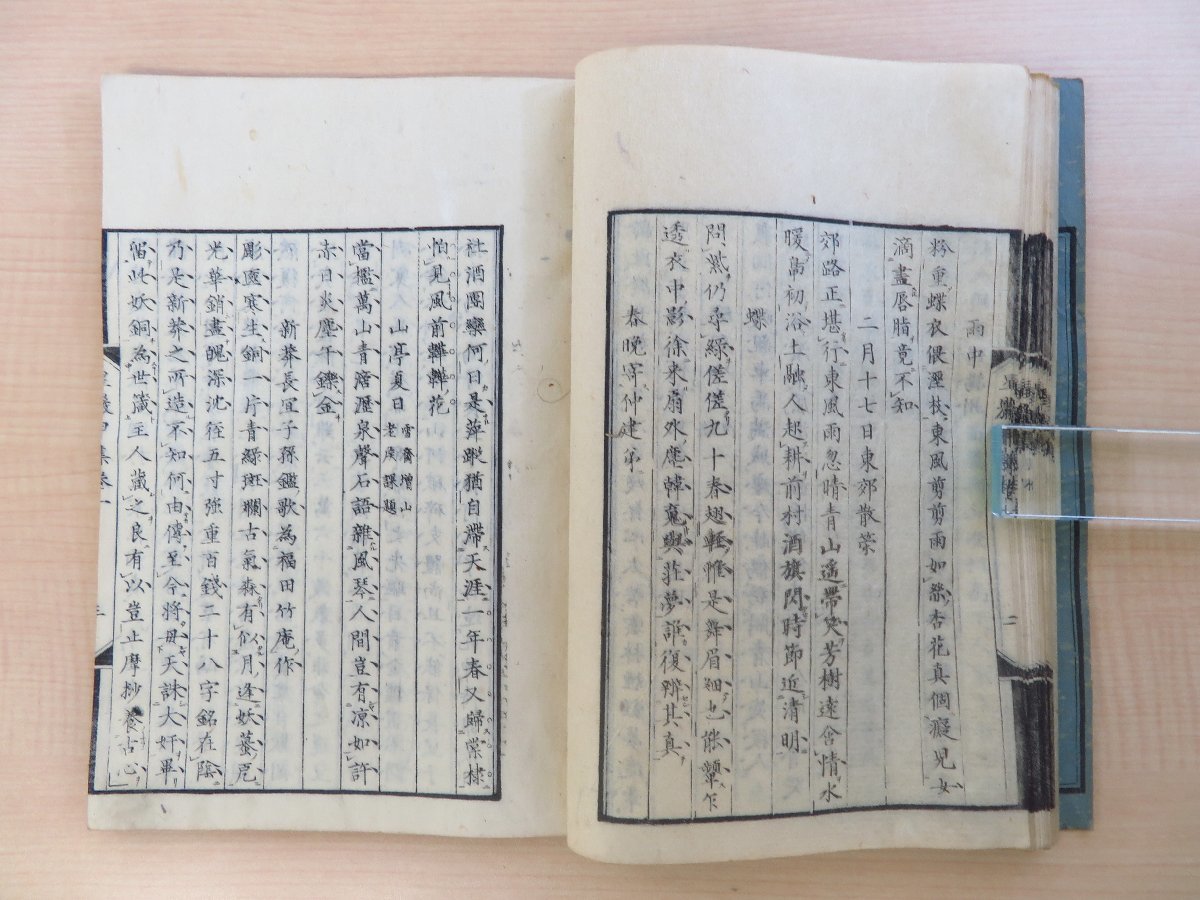 雨中
粉重蝶衣偎溼枝東風剪剪雨如絲杏花真個癡兒女
滴盡唇脂竟不知
二月十七日東郊散策
郊路正堪行東風雨忽晴青山遙帶笑芳樹達含情水
暖鳧初浴土融人起耕前村酒旗閃時節近清明
蝶
問
九十春翅輕惟是舞眉細也能顰乍
透衣中影徐來扇外塵韓魂與莊夢誰復辨其真
春晚寄仲建弟
社酒團欒何日是萍蹤猶自滯天涯一年春又歸棠棣
怕見風前韡韡花
山亭夏日
當檻萬山青滴瀝泉聲石語雜風琴人間豈有涼如許
赤日炎塵午鑠金
新莽長宜子孫鑑歌為福田竹庵作
彫匳寒生銅一片青綠斑斕古氣森有似月逢妖蟇厄
光華銷盡魄深沈徑五寸強重百錢三十八字銘在陰
乃是新莽之所造不知何由傳至今將毋天誅大奸畢
留此妖銅為世箴主人藏之良有以豈止摩挲養古心
三
二